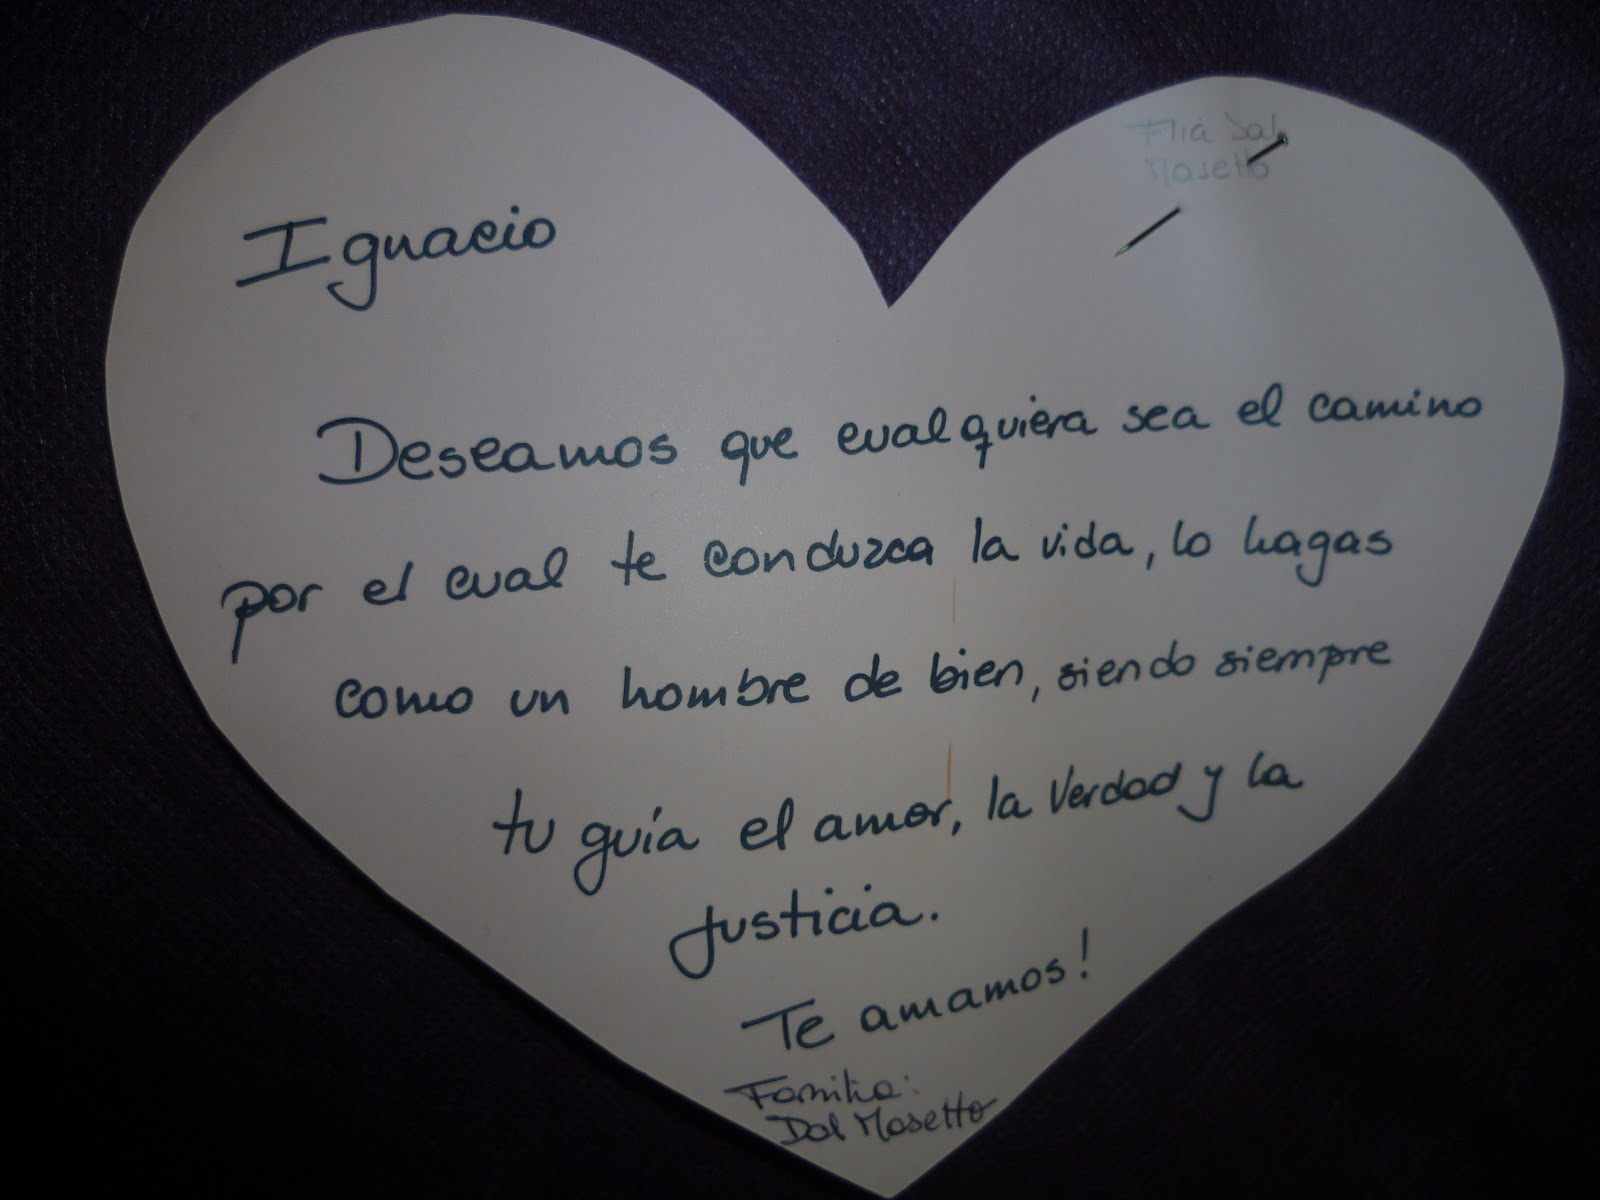 Flia Dal
Masetto
Ignacio
Deseamos que cualquiera sea el camino
por el cual te conduzca la vida, lo hagas
como un hombre de bien, siendo siempre
tu guía el amor, la Verdad y la
Justicia.
Te amamos!
Familia:
Dal Masetto